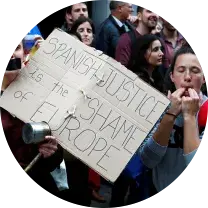 SPANISH JUSTICE
is the SHAME
of EUROPE